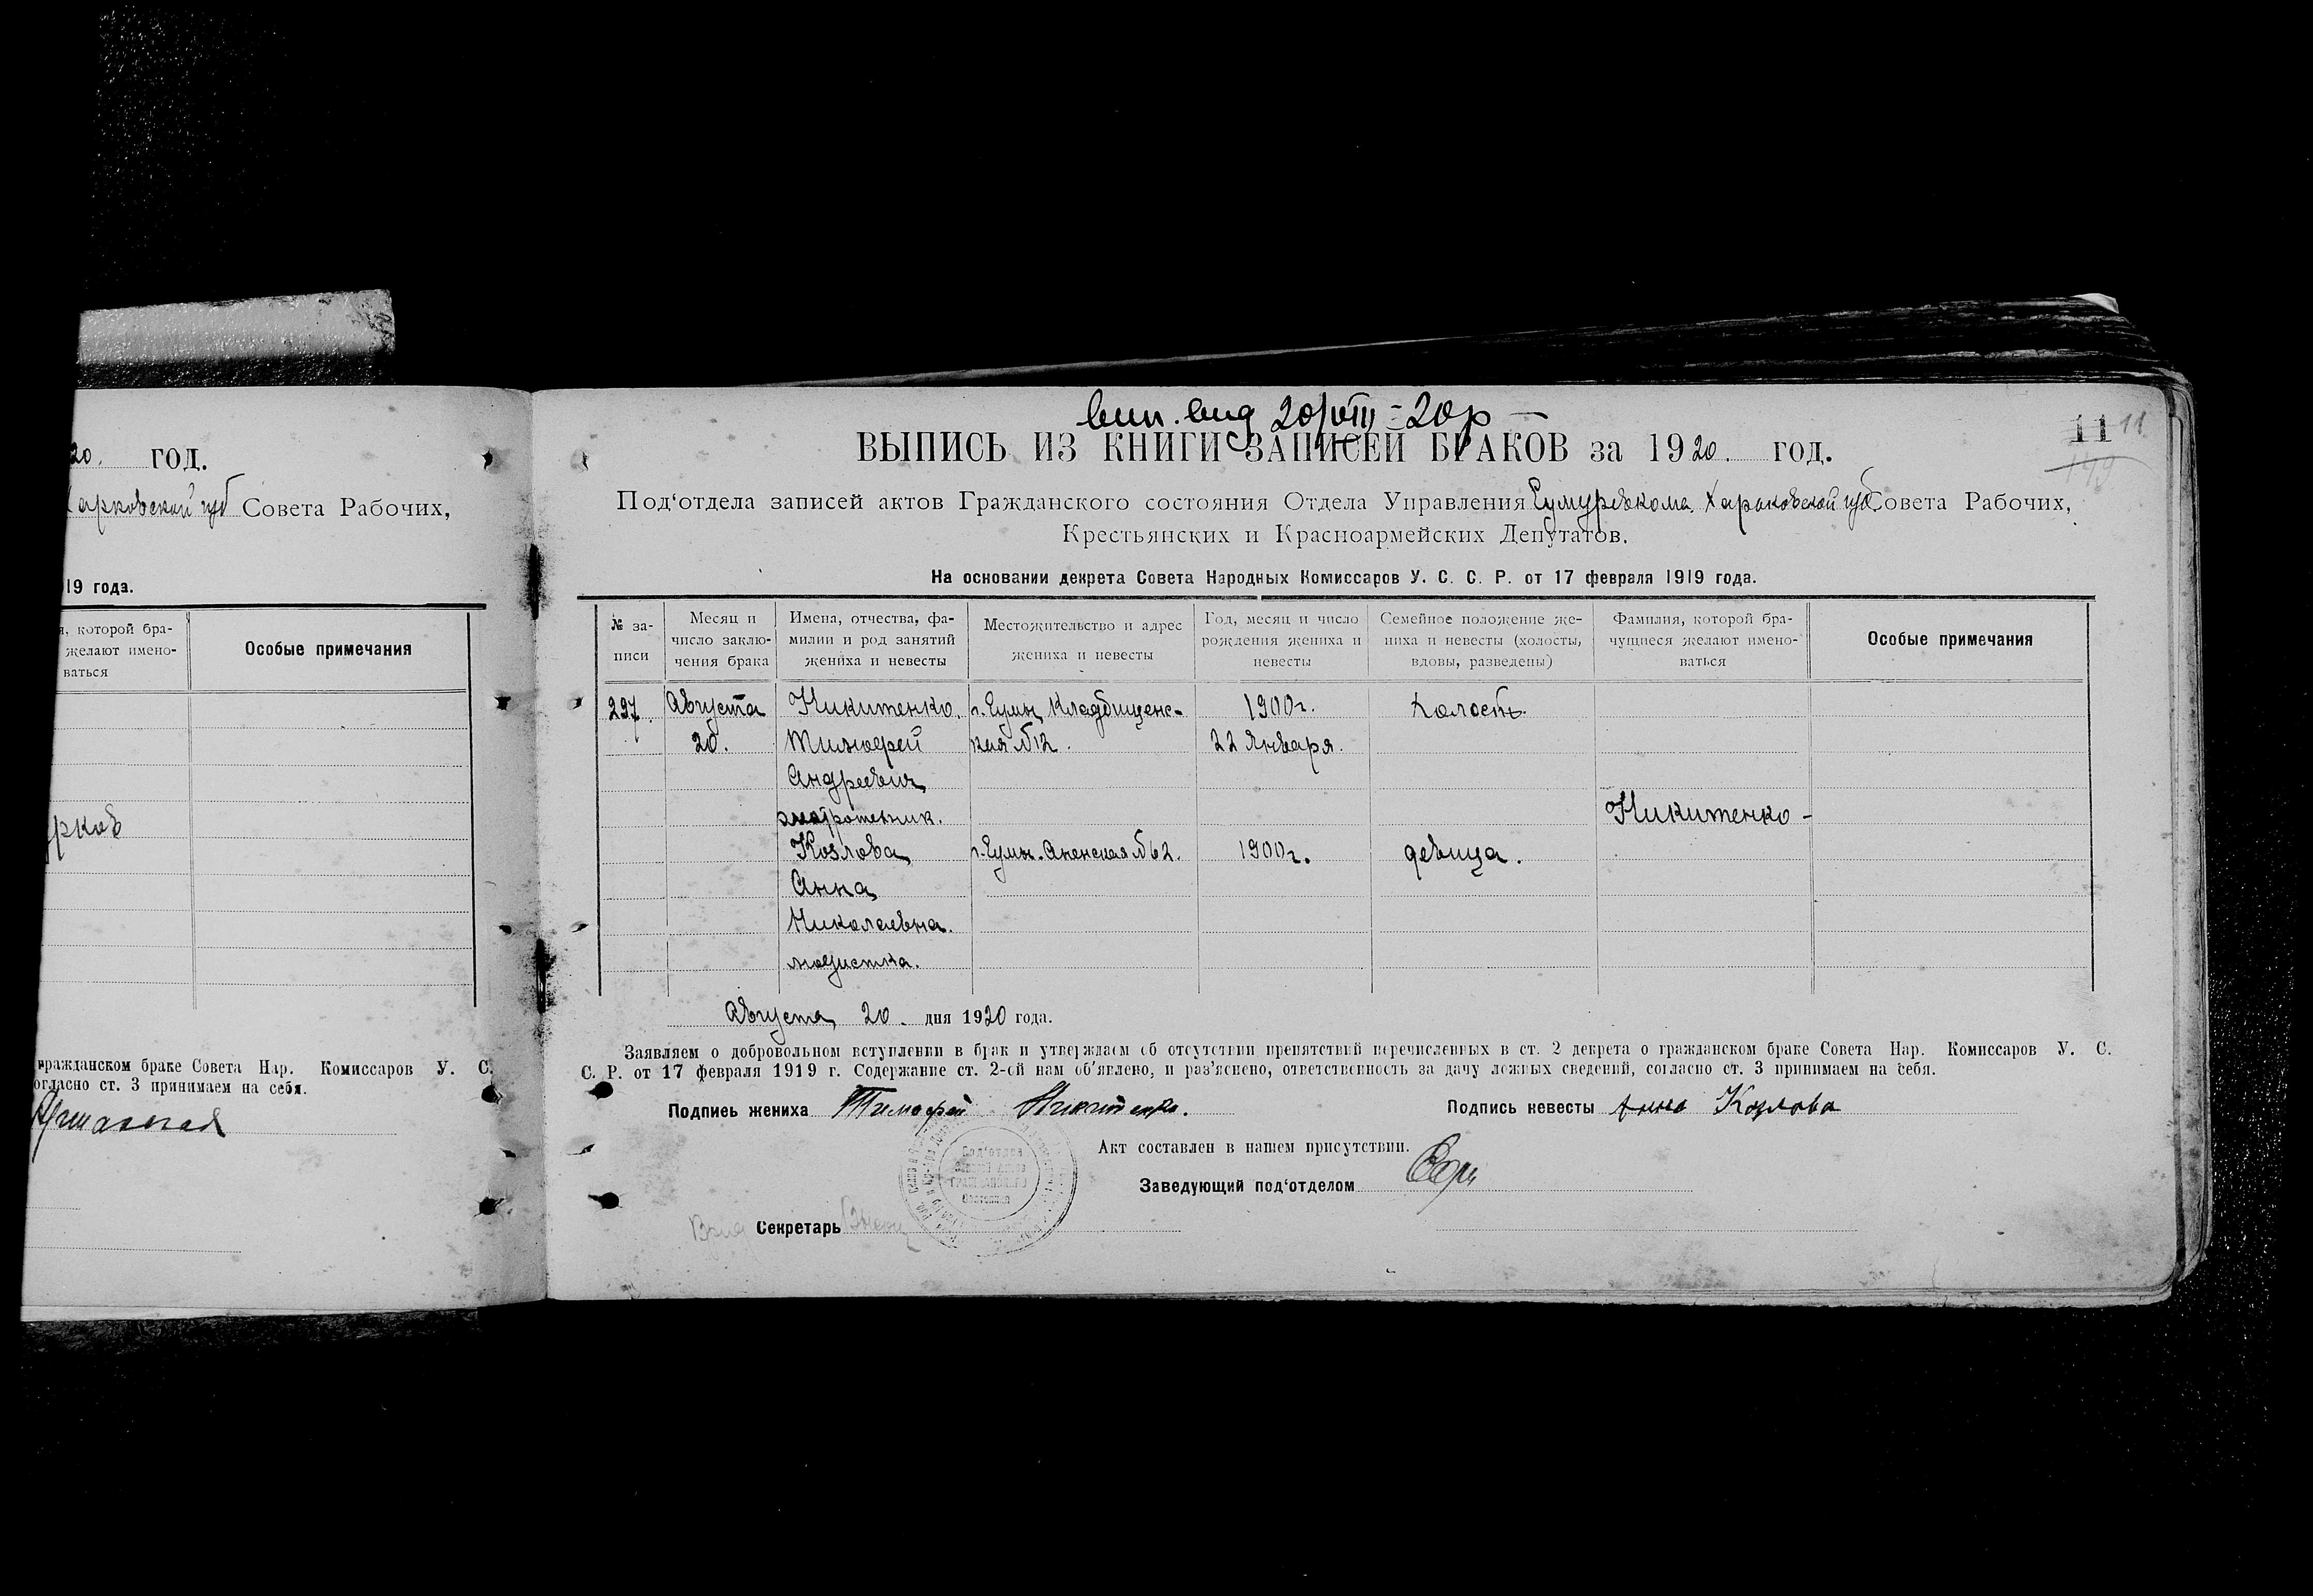 20. ГОД.
Харковской губ Совета Рабочих,
19 года.
которой бра-
желают имено-
ваться
Особые примечания
гражданском браке Совета Нар. Комиссаров У. С.
огласно ст. 3 принимаем на себя.
вип. вид 20/VIII - 20р
11 11
149
ВЫПИСЬ ИЗ КНИГИ ЗАПИСЕЙ БРАКОВ за 1920. год.
Под'отдела записей актов Гражданского состояния Отдела Управления Сумуревкома Харьковской губ Совета Рабочих,
Крестьянских и Красноармейских Депутатов.
На основании декрета Совета Народных Комиссаров У. С. С. Р. от 17 февраля 1919 года.
№ за-
писи
Месяц и
число заклю-
чения брака
Имена, отчества, фа-
милии и род занятий
жениха и невесты
Местожительство и адрес
жениха и невесты
Год, месяц и число
рождения жениха и
невесты
Семейное положение же-
ниха и невесты (холосты,
вдовы, разведены)
Фамилия, которой бра-
чущиеся желают имено-
ваться
Особые примечания
297. Августа Никитенко. г. Сумы, Кладбищенс- 1900г. Холост.
20. Тимофей кая №12. 22 Января.
Андреевич
Никитенко -
Козлова г. Сумы. Аненская №62. 1900г. девица.
Анна
Николаевна.
модистка.
Августа 20. дня 1920 года.
Заявляем о добровольном вступлении в брак и утверждаем об отсутствии препятствий перечисленных в ст. 2 декрета о гражданском браке Совета Нар. Комиссаров У. С.
С. Р. от 17 февраля 1919 г. Содержание ст. 2-ой нам об'явлено, и раз'яснено, ответственность за дачу ложных сведений, согласно ст. 3 принимаем на себя.
Подпись жениха Тимофей Никитенко.
Подпись невесты Анна Козлова
Акт составлен в нашем присутствии.
Заведующий под'отделом
Секретарь